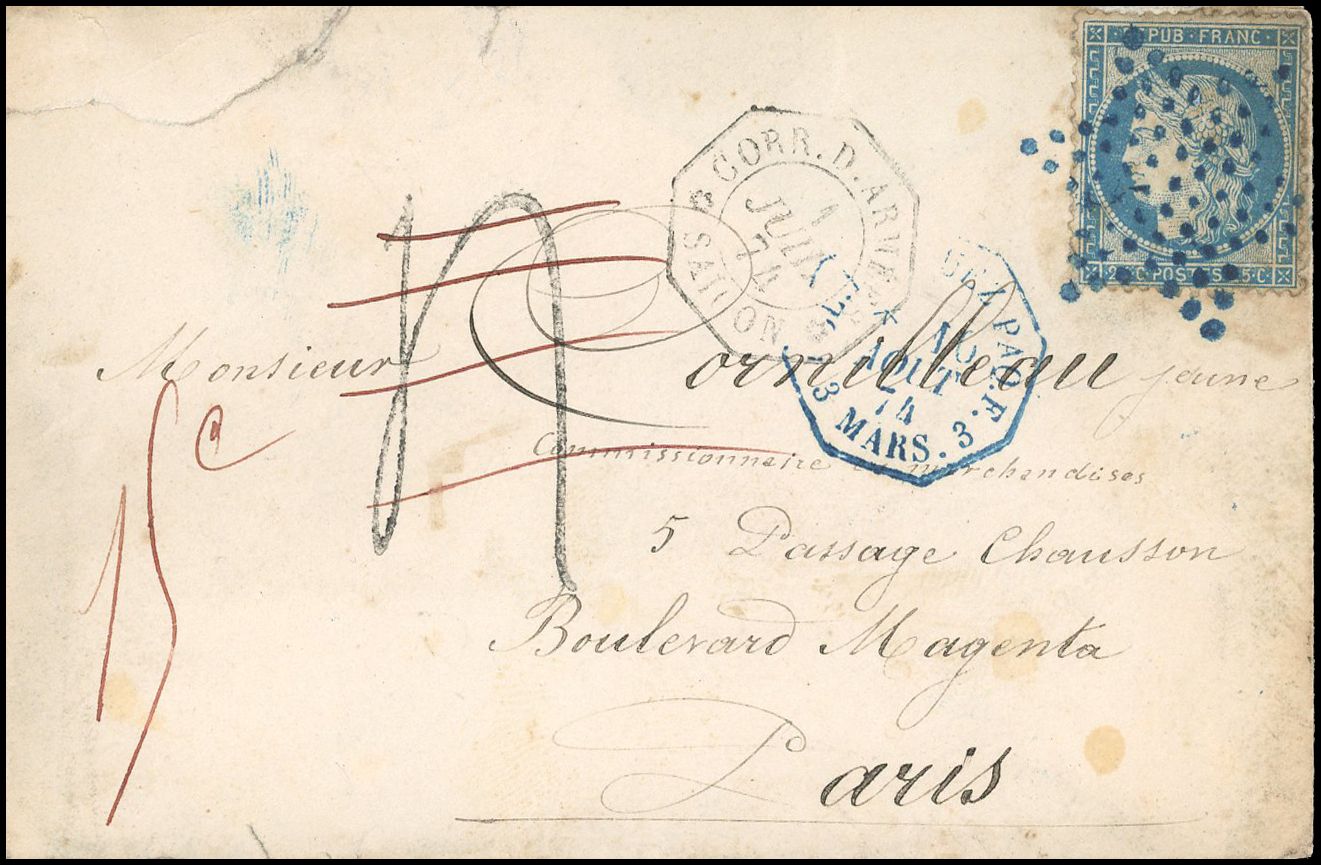 REPUB · FRANC ·
25 C · POSTES · 25 C ·
CORR. D. ARMÉES
1
JUIL
74
SAIGON
COL. FR. PAQ. F. 3
AOUT
74
3 MARS. 3
Monsieur Cornilleau jeune
Commissionnaire en marchandises
15 c
5 Passage Chausson
Boulevard Magenta
Paris